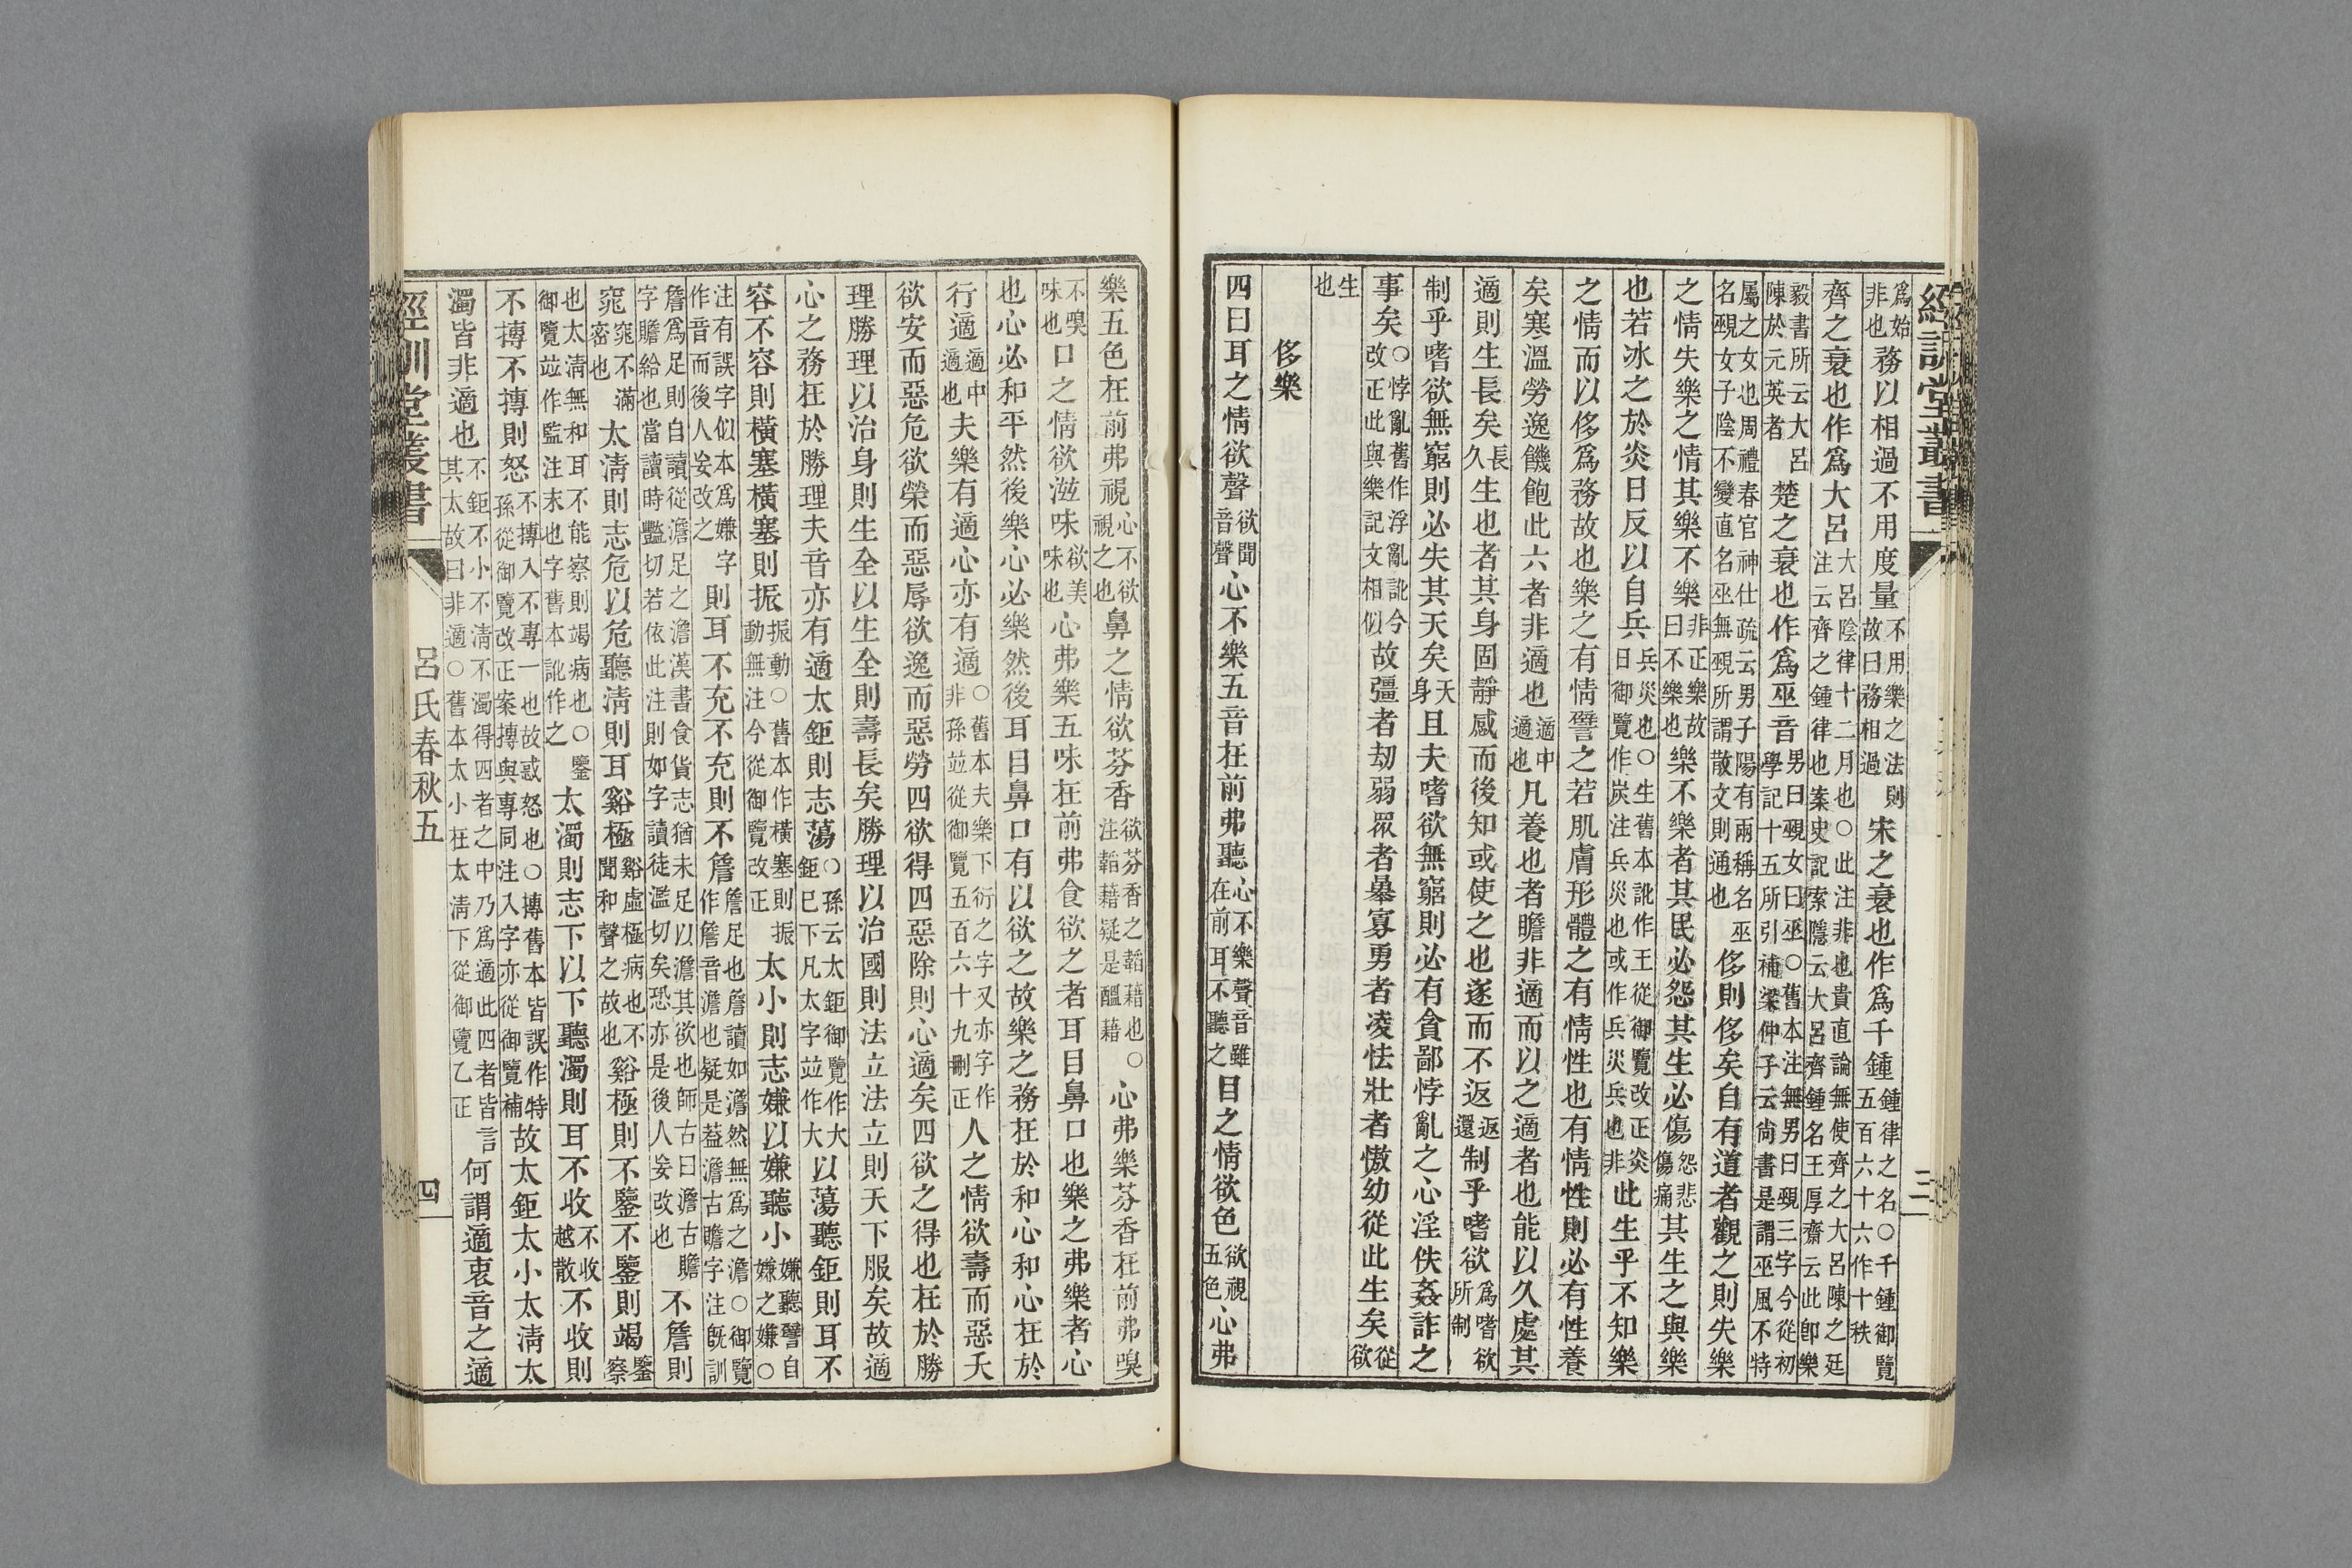 經訓堂叢書
三
爲始非也務以相過不用度量不用樂之法則故曰務相過宋之衰也作爲千鍾鍾律之名○千鍾御覽五百六十六作十秩
齊之衰也作爲大呂大呂陰律十二月也○此注非也貴直論無使齊之大呂陳之廷注云齊之鍾律也案史記索隱云大呂齊鍾名王厚齋云此卽樂
毅書所云大呂陳於元英者楚之衰也作爲巫音男曰覡女曰巫○舊本注無男曰覡三字今從初學記十五所引補梁仲子云尙書是謂巫風不特
屬之女也周禮春官神仕疏云男子陽有兩稱名巫名覡女子陰不變直名巫無覡所謂散文則通也侈則侈矣自有道者觀之則失樂
之情失樂之情其樂不樂非正樂故曰不樂也樂不樂者其民必怨其生必傷怨悲傷痛其生之與樂
也若冰之於炎日反以自兵兵災也○生舊本訛作王從御覽改正炎日御覽作炭注兵災也或作兵災兵也非此生乎不知樂
之情而以侈爲務故也樂之有情譬之若肌膚形體之有情性也有情性則必有性養
矣寒溫勞逸饑飽此六者非適也適中適也凡養也者瞻非適而以之適者也能以久處其
適則生長矣長久生也者其身固靜感而後知或使之也遂而不返返還制乎嗜欲爲嗜欲所制
制乎嗜欲無窮則必失其天矣天身且夫嗜欲無窮則必有貪鄙悖亂之心淫佚姦詐之
事矣○悖亂舊作浮亂訛今改正此與樂記文相似故彊者劫弱眾者暴寡勇者凌怯壯者慠幼從此生矣從欲
生也
侈樂
四曰耳之情欲聲欲聞音聲心不樂五音在前弗聽心不樂聲音雖在前耳不聽之目之情欲色欲視五色心弗
樂五色在前弗視心不欲視之也鼻之情欲芬香欲芬香之韜藉也○注韜藉疑是醞藉心弗樂芬香在前弗嗅
不嗅味也口之情欲滋味欲美味也心弗樂五味在前弗食欲之者耳目鼻口也樂之弗樂者心
也心必和平然後樂心必樂然後耳目鼻口有以欲之故樂之務在於和心和心在於
行適適中適也夫樂有適心亦有適○舊本夫樂下衍之字又亦字作非孫竝從御覽五百六十九刪正人之情欲壽而惡夭
欲安而惡危欲榮而惡辱欲逸而惡勞四欲得四惡除則心適矣四欲之得也在於勝
理勝理以治身則生全以生全則壽長矣勝理以治國則法立法立則天下服矣故適
心之務在於勝理夫音亦有適太鉅則志蕩○孫云太鉅御覽作大鉅已下凡太字竝作大以蕩聽鉅則耳不
容不容則橫塞橫塞則振振動○舊本作橫塞則振動無注今從御覽改正太小則志嫌以嫌聽小嫌聽譬自嫌之嫌○
注有誤字似本爲嫌字作音而後人妄改之則耳不充不充則不詹詹足也詹讀如澹然無爲之澹○御覽作詹音澹也疑是葢澹古贍字注旣訓
詹爲足則自讀從澹足之澹漢書食貨志猶未足以澹其欲也師古曰澹古贍字贍給也當讀時豔切若依此注則如字讀徒濫切矣恐亦是後人妄改也不詹則
窕窕不滿密也太淸則志危以危聽淸則耳谿極谿虛極病也不聞和聲之故也谿極則不鑒不鑒則竭鑒察
也太淸無和耳不能察則竭病也○鑒御覽竝作監注末也字舊本訛作之太濁則志下以下聽濁則耳不收不收越散不收則
不摶不摶則怒不摶入不專一也故惑怒也○摶舊本皆誤作特孫從御覽改正案摶與專同注入字亦從御覽補故太鉅太小太淸太
濁皆非適也不鉅不小不淸不濁得四者之中乃爲適此四者皆言其太故曰非適○舊本太小在太淸下從御覽乙正何謂適衷音之適
經訓堂叢書
呂氏春秋五
四